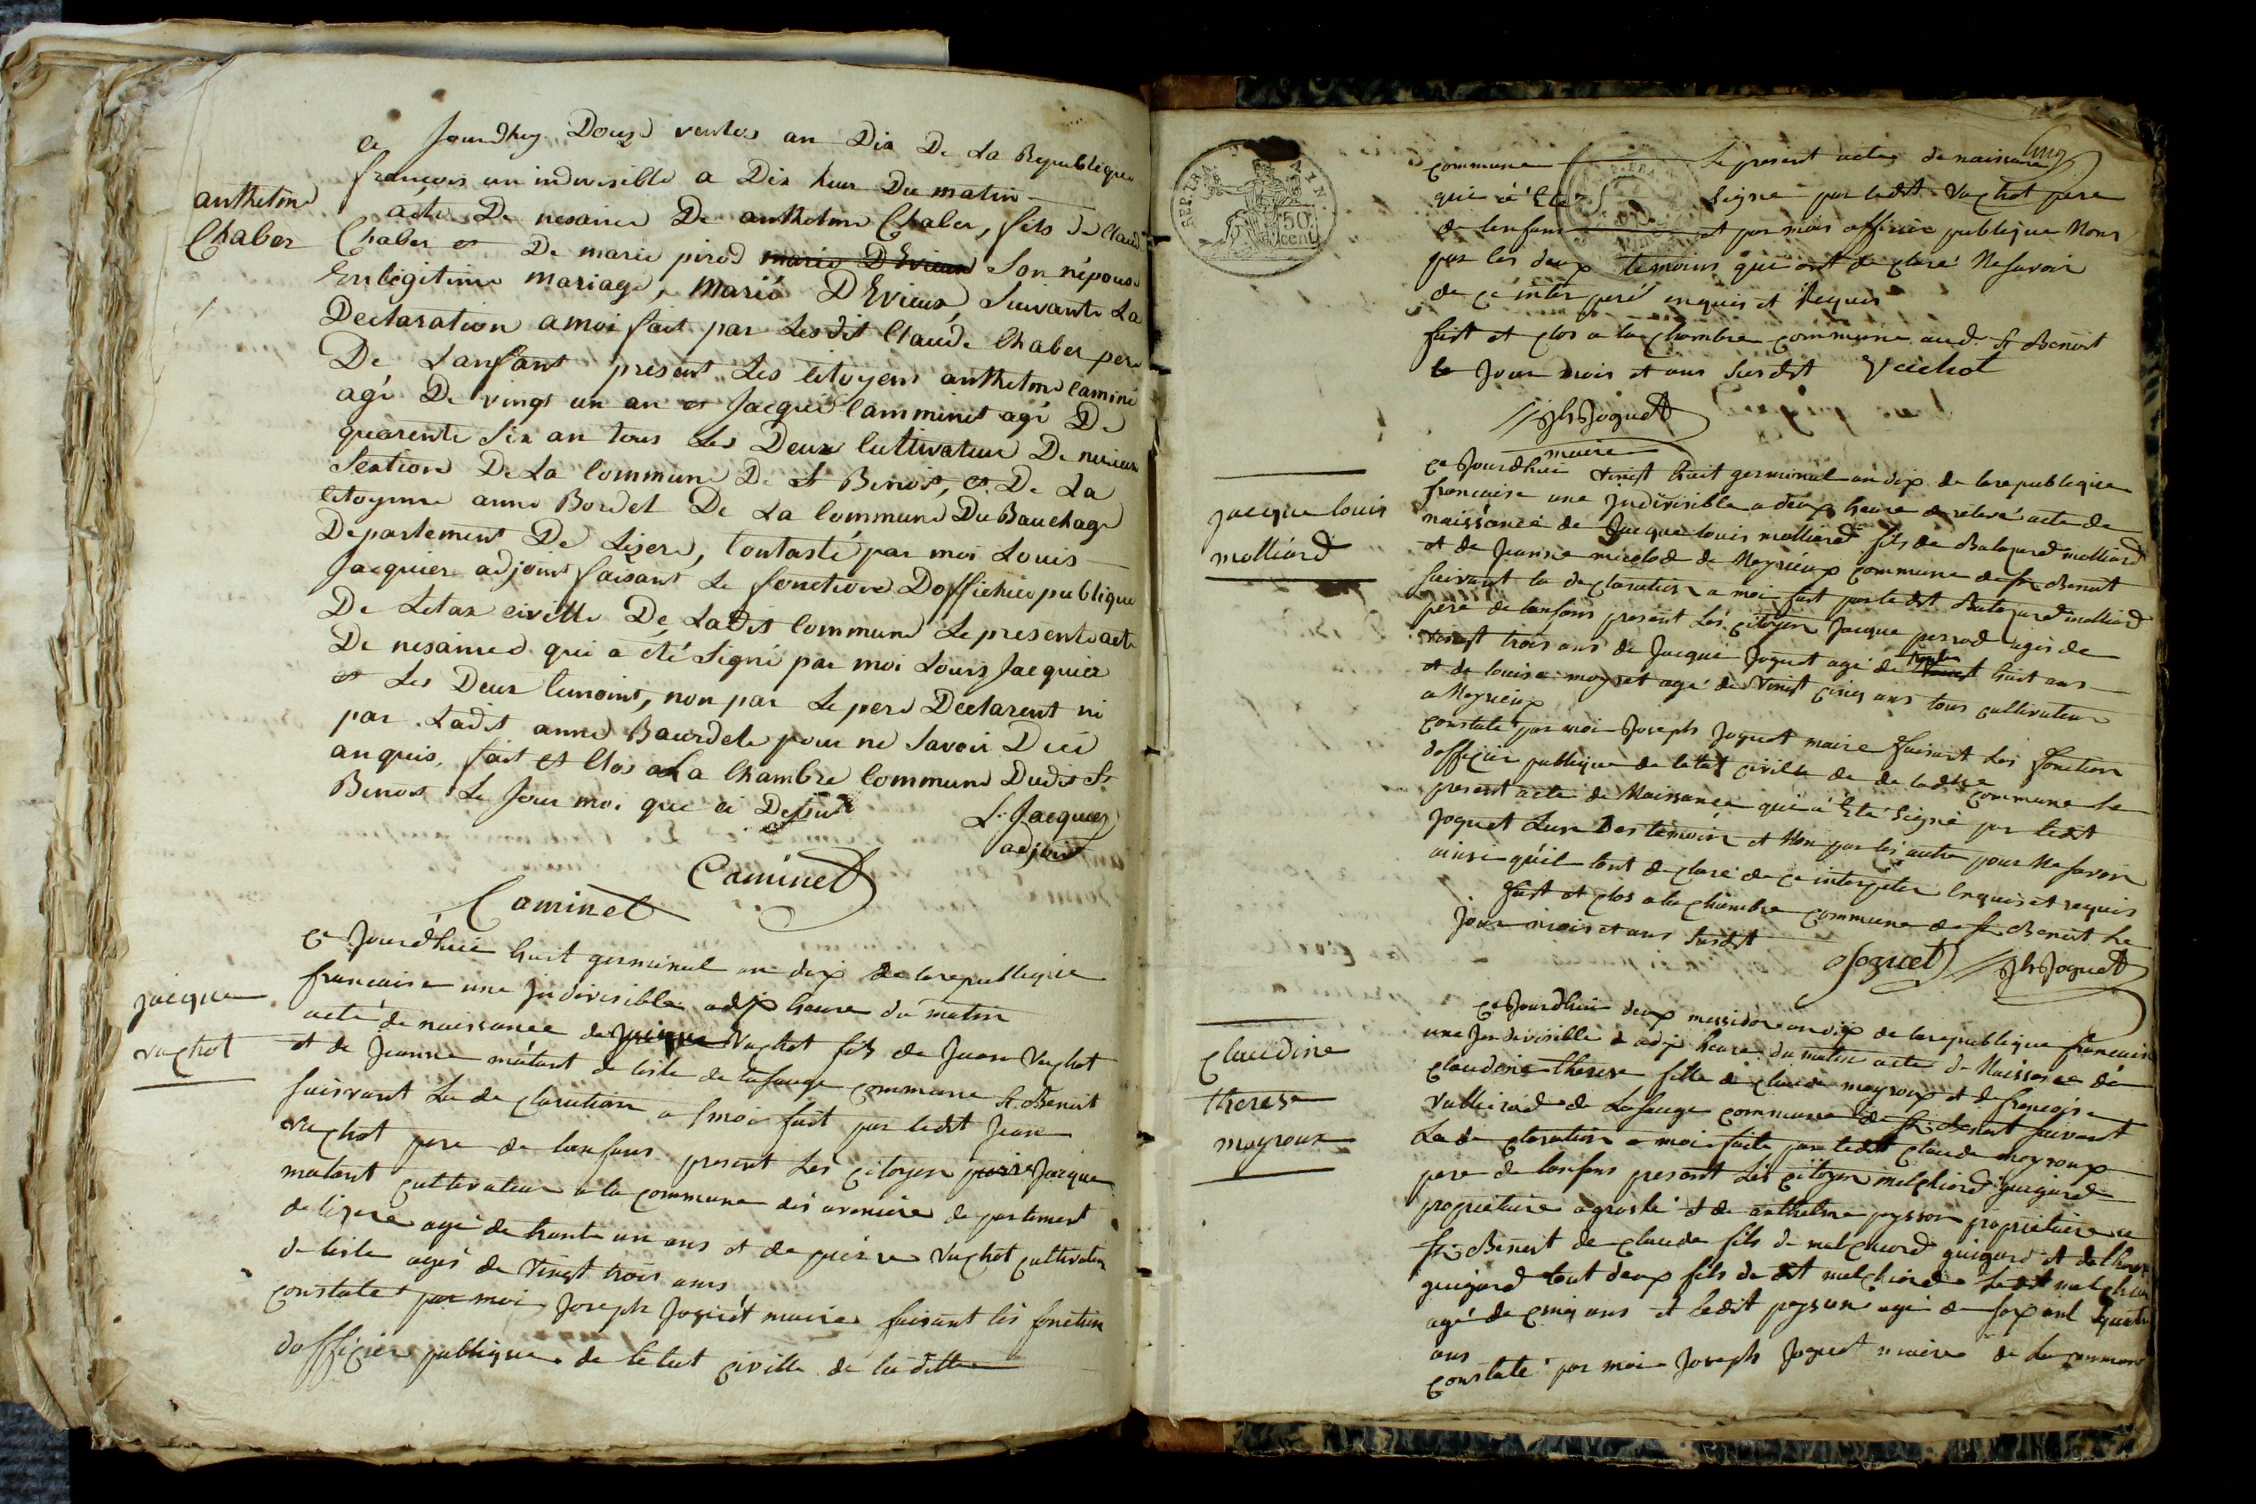 Ce Jourdhuy Douze ventos an Dix De La Republique
francois un indivisible a Dix heur Du matin
anthelme
Chaber
acte De nesance De anthelme Chaber, fils de Claud
Chaber et De marie pirod marie D Evieux Son népouse
En légitime mariage, marié D Evieux, Suivante La
Declaration amoi fait par Lesdit Claude Chaber pere
De Lanfant présent Les citoyens anthelme Caminé
agé De vingt un an et Jacque Camminet agé De
quarente Six an tous Les Deux Cultivateur De
Section De La Commune De St Benoit, et De La
Citoyenne anne Bordel De La Commune Du Bauchage
Departement De Lisere, Contasté par moi Louis
Jacquier adjoint faisant Le fonction Doffichier publique
De Letax civille De Ladit Commune Le present acte
De nesance qui a été Signé par moi Louis Jacquier
et Les Deux temoint, non par Le pere Declarent ni
par Ladit anne Baurdele pour ne Savoir Dici
anquis, fait et Clos a La Chambre Commune Dudit St
Benoit Le Jour moi que ci Dessus
L. Jacquier
adjoint
Caminet
Caminet
jacque
vachot
Ce Jourdhuie huit germinal an dix de la republiquie
francaise une Jndivisible a dix heure du matin
acte de naissance de Jacque Vachot fils de Jean Vachot
et de Jeanne métant de liste de lafauge commune St. Benoit
suivant La de claration a moi fait par ledit Jean
vachot pere de lanfans present Les citoyen Jacque
matant cultivateur a la commune des avenire de partement
de lizere agé de trante un ans et de pierre Vachot cultivateur
de liste agés de Vingt trois ans
constate par moi Joseph Joguet maire faisant les fonction
dofficier publique de letat civille de la ditte
cinq
commune le present acte de naissance
qui a été signé par ledit Vachot pere
de lenfans et par moi officier publique Nons
par les deux temoins qui ont de claré Ne savoir
de ce inter peré enquis et Requis
fait et clos a la chambre commune aud. St Benoit
le Jour mois et ans Susdit Vachot
Jh Joguet
maire
jacque louis
molliard
Ce Jourdhuie Vingt huit germinal an dix de la republiquie
francaise une Jndivisible a deux heure de relevé acte de
naissance de Jacque louis molliard fils de Balazard molliard
et de Jeanne micolod de Meyrieux commune de St Benoit
suivant la de claration a moi fait par ledit Balazard molliard
pere de lanfans present Les citoyen Jacque perrod agés de
Vingt trois ans de Jacque Joguet agé de trante huit ans
et de louise moyret agé de Vingt cinq ans tous cultivateur
a Meyrieux
constate par moi Joseph Joguet maire faisant les fonction
dofficier publique de letat civille de de ladite commune Le
present acte de Naissance qui a Eté signé par ledit
Joguet Lun Des temoin et Non par les autre pour Ne savoir
ainsi quil lont de claré de ce interpeler Enquis et requis
fait et clos a la chambre commune de St Benoit le
jour mois et ans susdit
Joguet Jh Joguet
claudine
therese
moyroux
Ce Jourdhuie deux messidor an dix de la republique francaise
une Jndivisible a dix heure du matin acte de Naissance de
claudine therese fille de claude moyroux et de francoise
Vallirod de Lafauge commune de St. Benoit suivant
La de claration a moi faite par ledit claude moyroux
pere de lanfans present Les citoyen melchiord guigard
propriétaire a groslé et de anthelme peysson propriétaire a
St. Benoit de claude fils de melchiord guigard et de
guigard tout deux fils de dit melchiord Ledit melchior
agé de cinq ans et ledit peysson agé de soxant quatre
ans
constaté par moi Joseph Joguet maire de la commune
50
cent